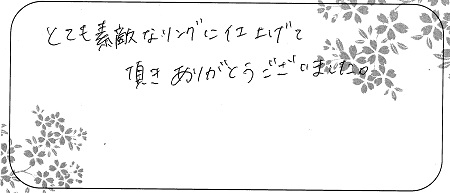 とても素敵なリングに仕上げて
頂きありがとうございました。